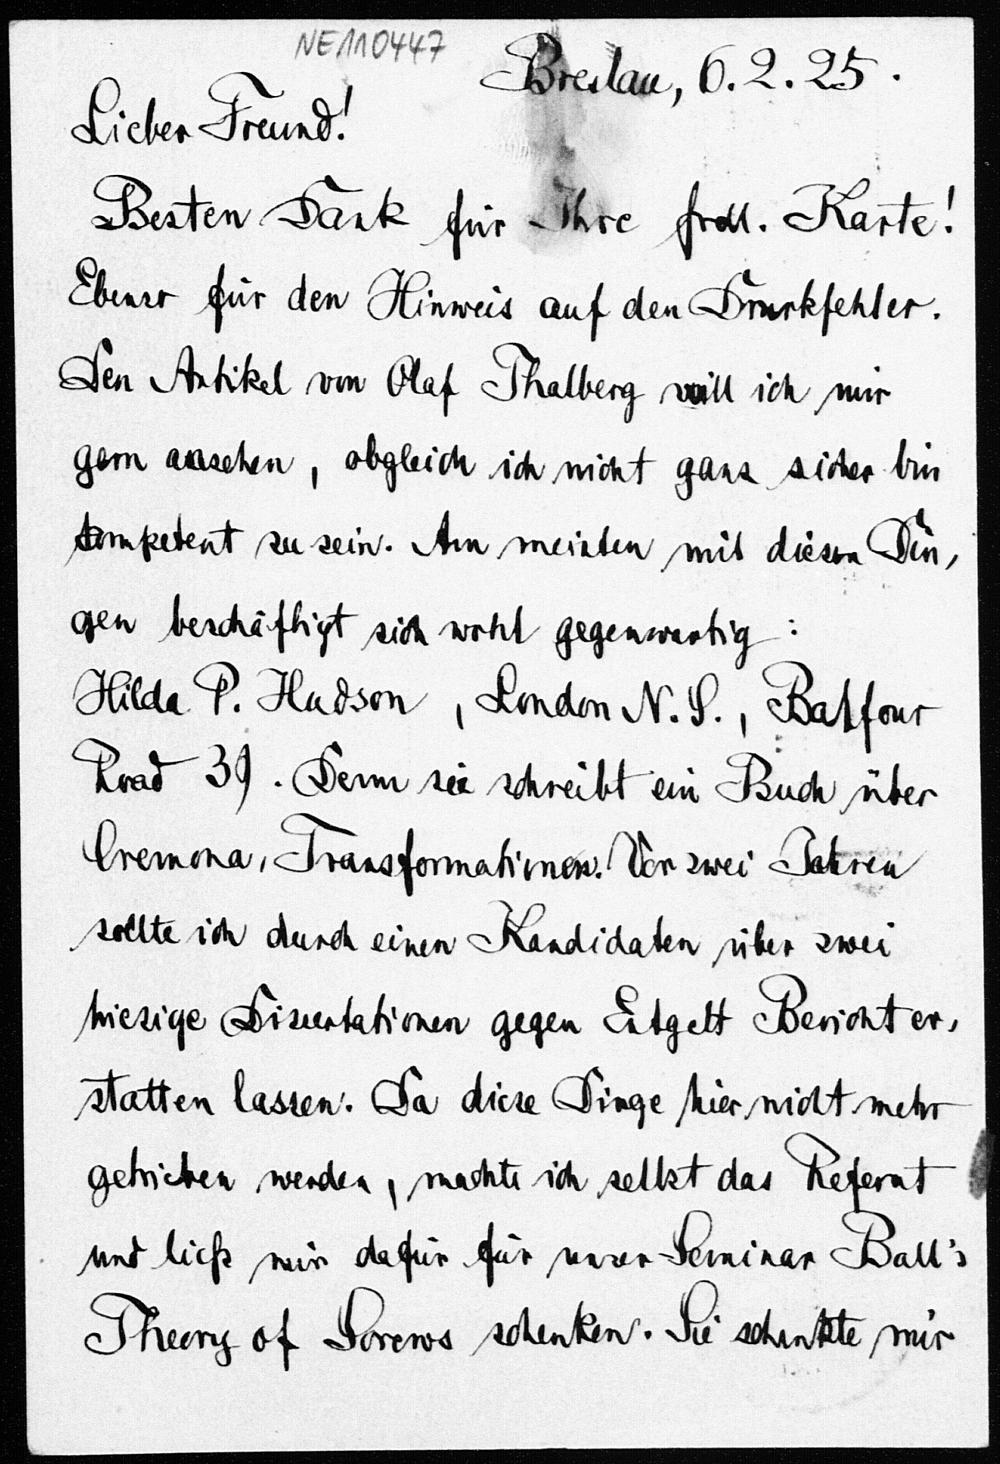 NE110447
Breslau, 6.2.25.
Lieber Freund!
Besten Dank für Ihre frdl. Karte!
Ebenso für den Hinweis auf den Druckfehler.
Den Artikel von Olaf Thalberg will ich mir
gern ansehen, obgleich ich nicht ganz sicher bin
kompetent zu sein. Am meisten mit diesen Din,
gen beschäftigt sich wohl gegenwärtig:
Hilda P. Hudson, London N. 5., Balfour
Road 39. Denn sie schreibt ein Buch über
Cremona, Transformationen. Vor zwei Jahren
sollte ich durch einen Kandidaten über zwei
hiesige Dissertationen gegen Entgelt Bericht er,
statten lassen. Da diese Dinge hier nicht mehr
getrieben werden, machte ich selbst das Referat
und ließ mir dafür für unser Seminar Ball's
Theory of Screws schenken. Sie schenkte mir